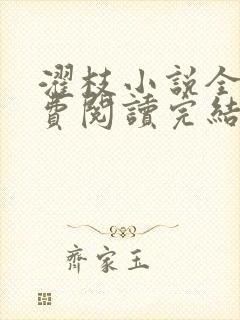 濯枝小說全
費閱讀完結
齊家玉